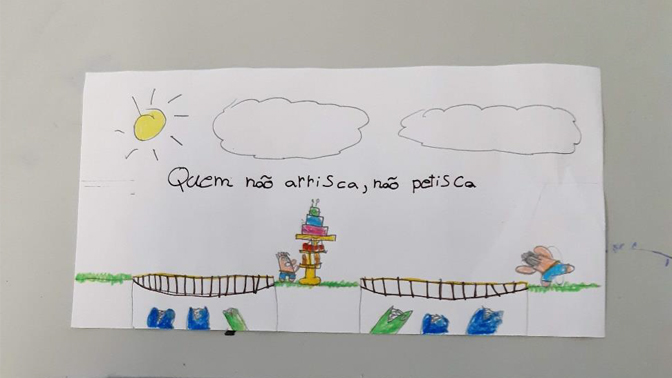 Quem não arrisca, não petisca